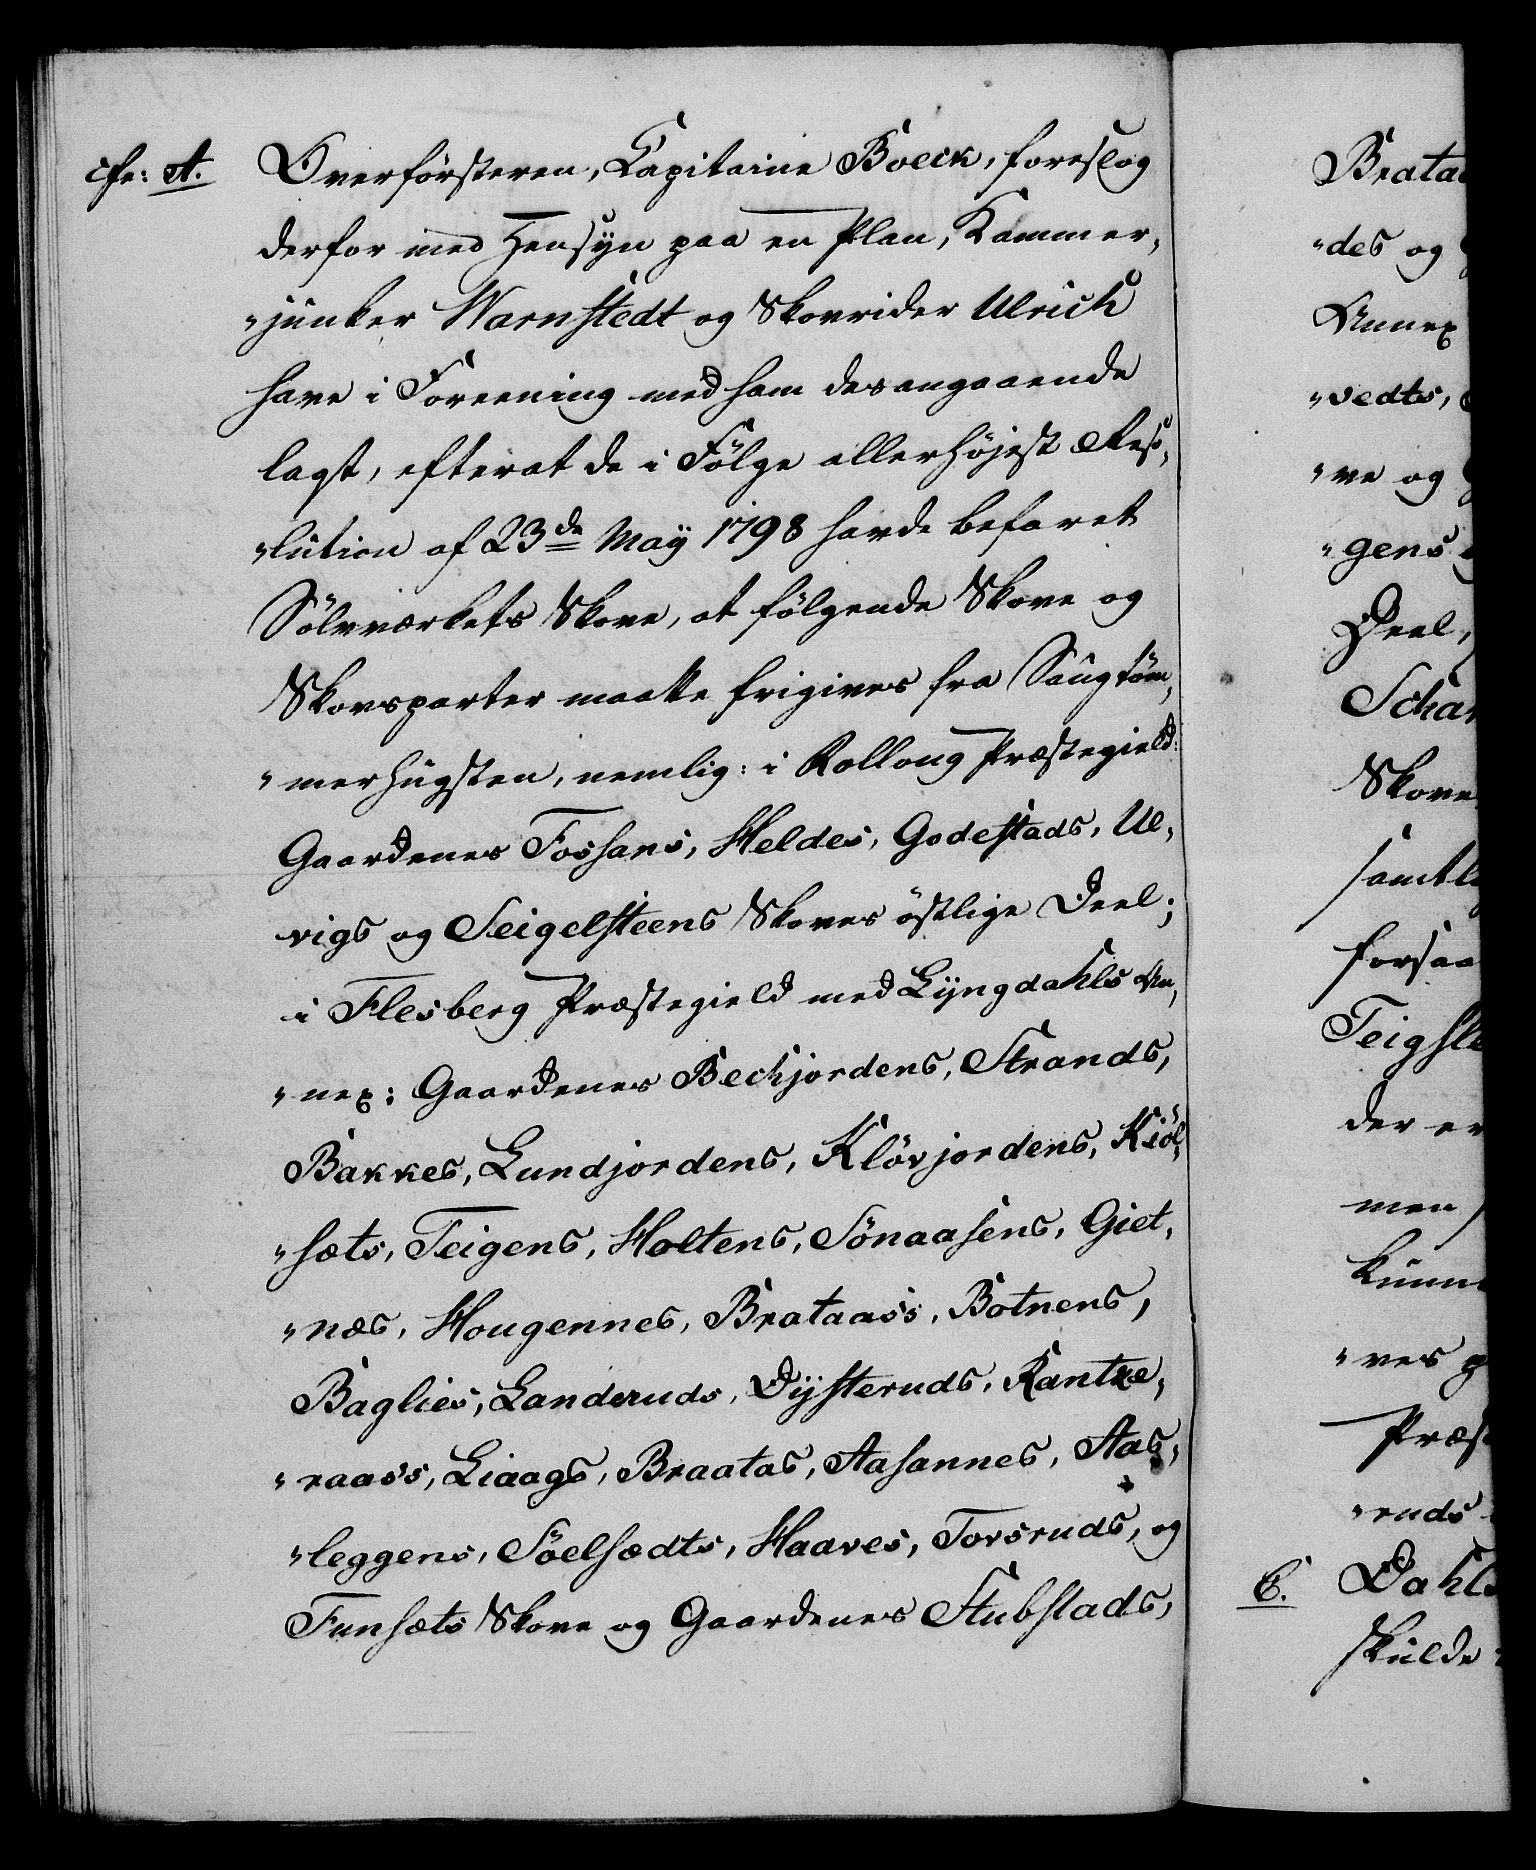 cfr: A.
Overförsteren, Kapitaine Boeck, foreslog
derfor med Hensÿn paa en Plan, Kammer„
„junker Warnstedt og Skovrider Ulrich
have i Foreening med ham desangaaende
lagt, efterat de i Fölge allerhöjest Reso„
„lution af 23de Maÿ 1798 havde befaret
Sölvværkets Skove, at fölgende Skove og
Skovsparter maatte frigives fra Saugtöm„
„merhugsten, nemlig: i Rolloug Præstegield:
Gaardenes Foshans, Heldes, Godestads, Ul„
vigs og Teigelsteens Skoves östlige Deel;
i Flesberg Præstegield med Lÿngdahls An„
„nex: Gaardenes Beckjordens, Strands,
Bakkes, Lundjordens, Klövjordens, Kiöl„
„sæts, Teigens, Holtens, Sönaasens, Giet„
„næs, Hougennes, Brataass, Botnens,
Baglies, Landeruds, Dÿsteruds, Kantze„
„raass, Liaags, Braatas, Aasannes, Aas„
„leggens, Söelsædts, Haaves, Torsruds, og
Funsæts Skove og Gaardenes Stubstads,
Brata
„des og
Annex
„vedts,
„ve og
„gens
Deel,
Skove
samtl
forsaa
Teigste
der er
men
kunn
„ves
Præst
„ruds
C.
Dahls
skulde